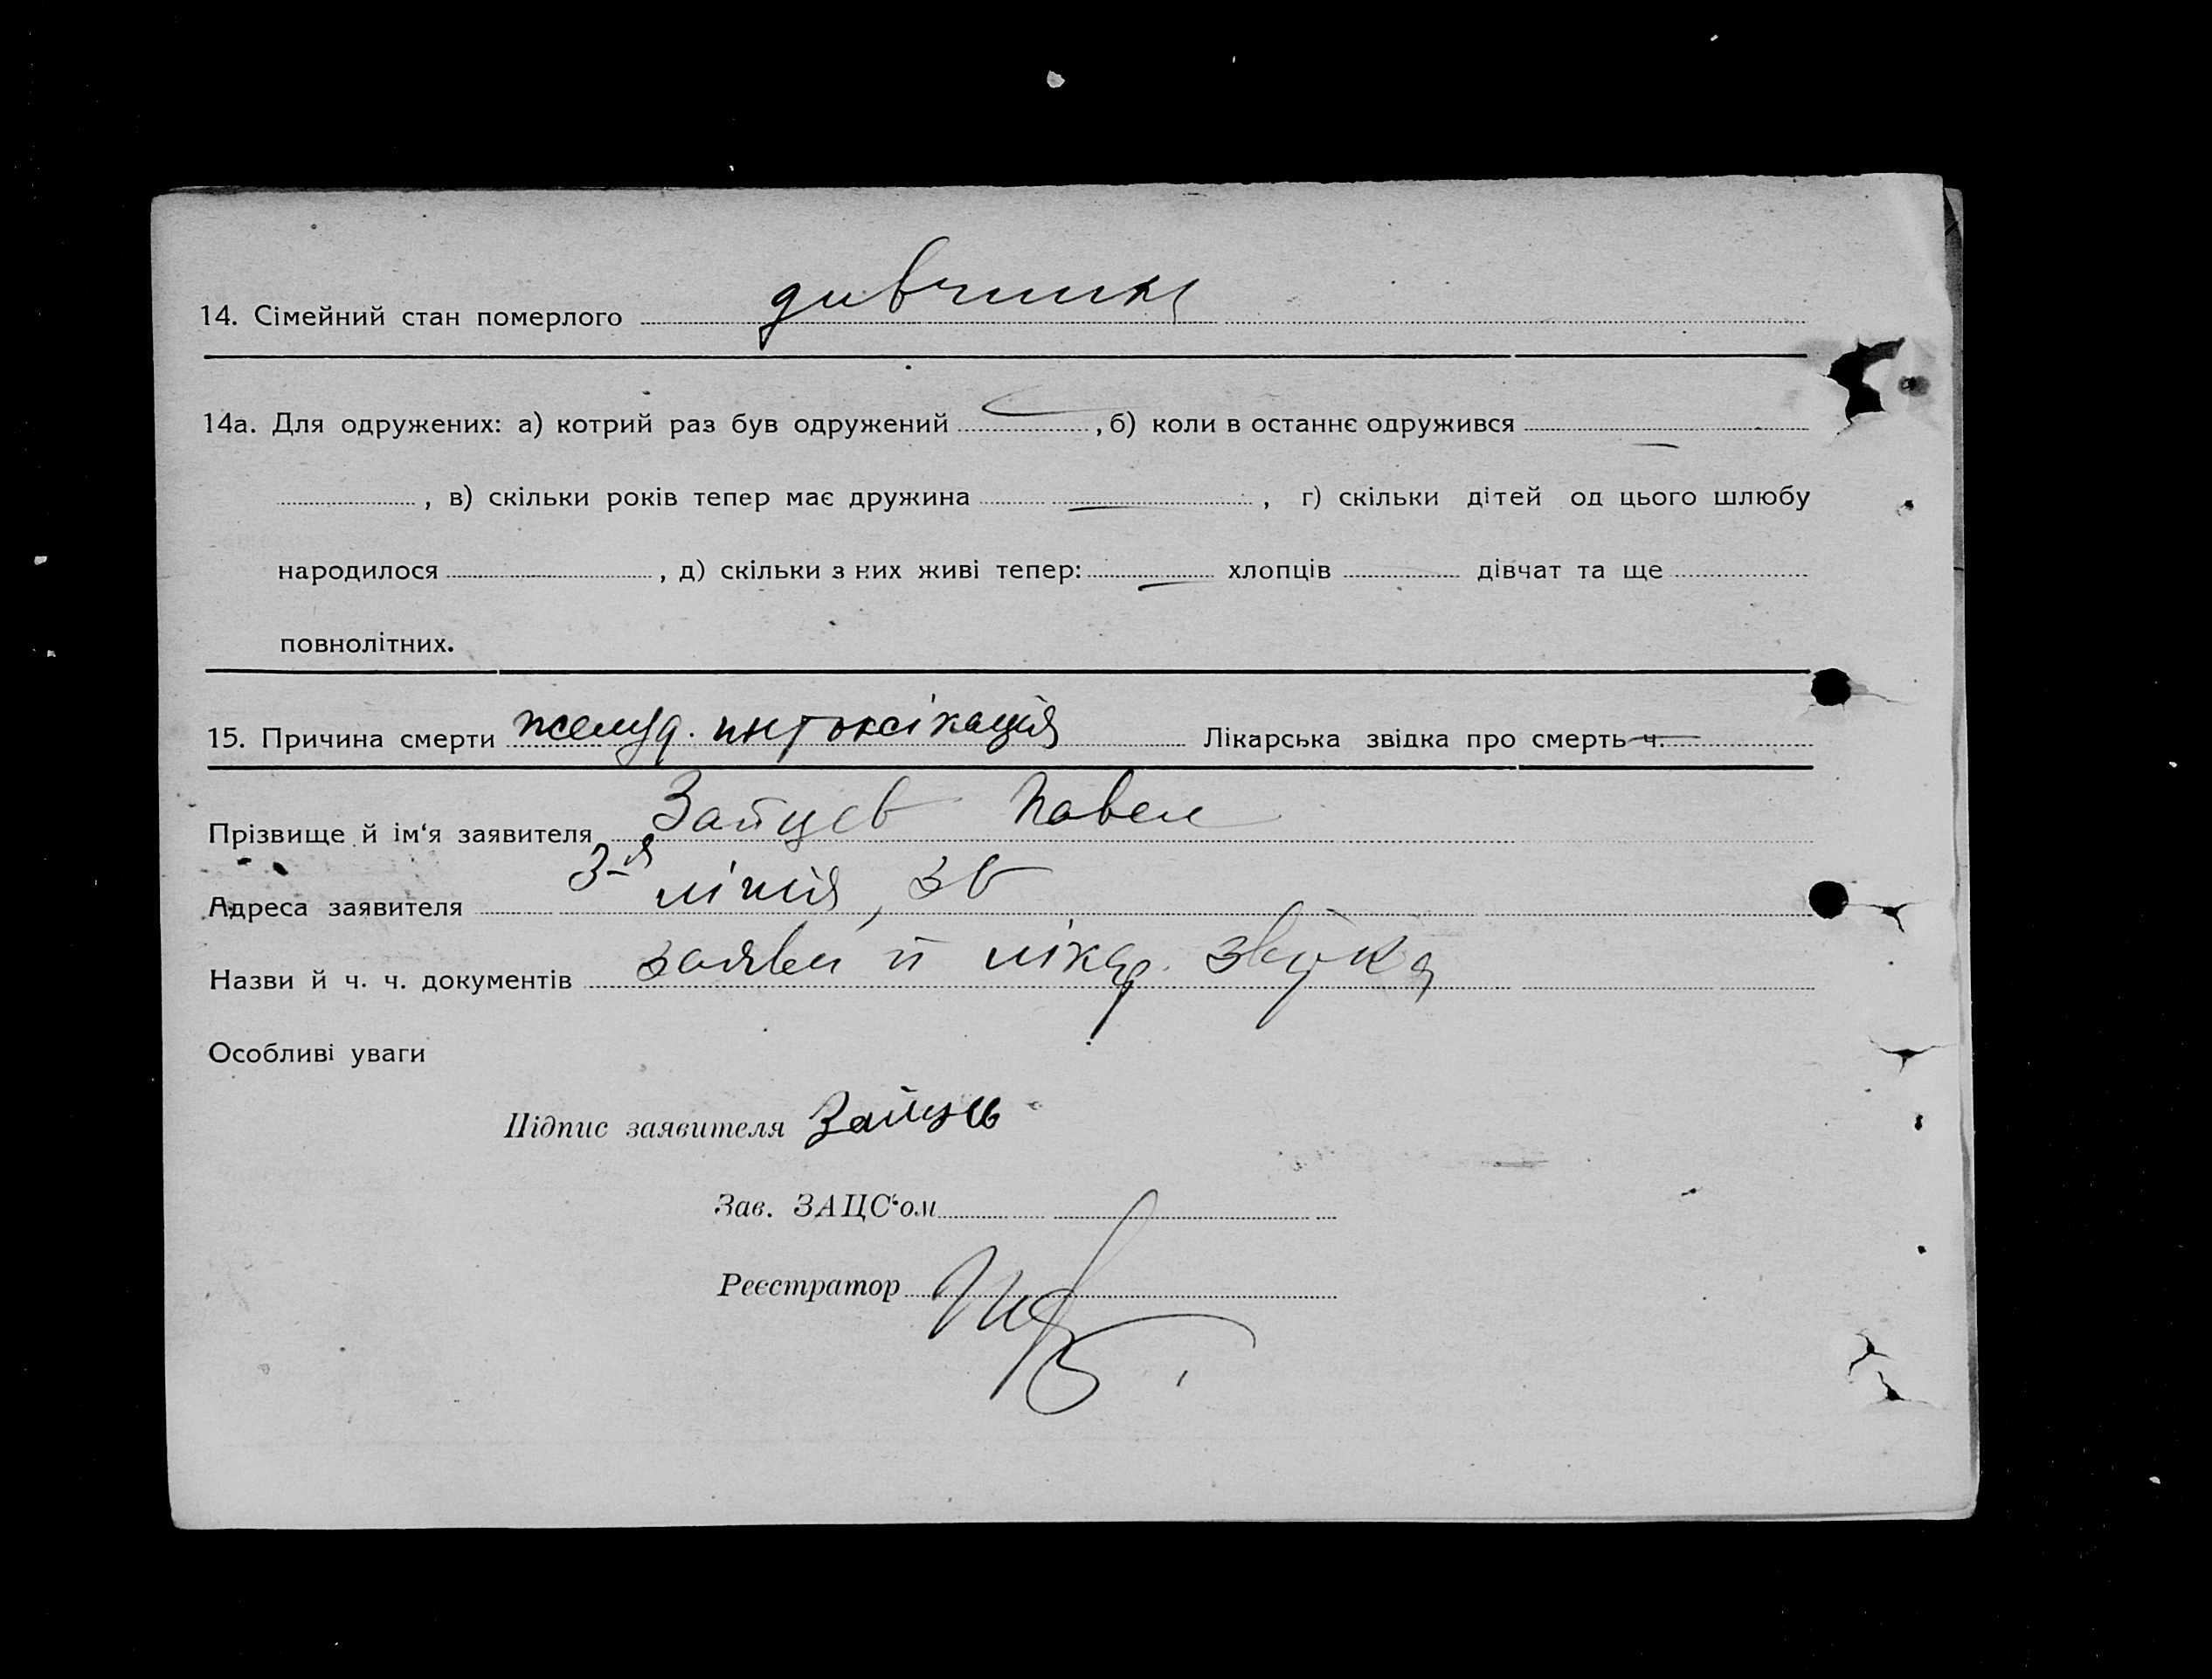 14. Сімейний стан померлого дивчинка
14а. Для одружених: а) котрий раз був одружений , б) коли в останнє одружився
, в) скільки років тепер має дружина , г) скільки дітей од цього шлюбу
народилося , д) скільки з них живі тепер: хлопців дівчат та ще
повнолітних.
15. Причина смерти желуд. интоксікація Лікарська звідка про смерть ч.
Прізвище й ім'я заявителя Зайцев Павел
Адреса заявителя 3-я лінія,
Назви й ч. ч. документів заява й лікар. звідка
Особливі уваги
Підпис заявителя Зайцев
Зав. ЗАЦС'ом
Реєстратор